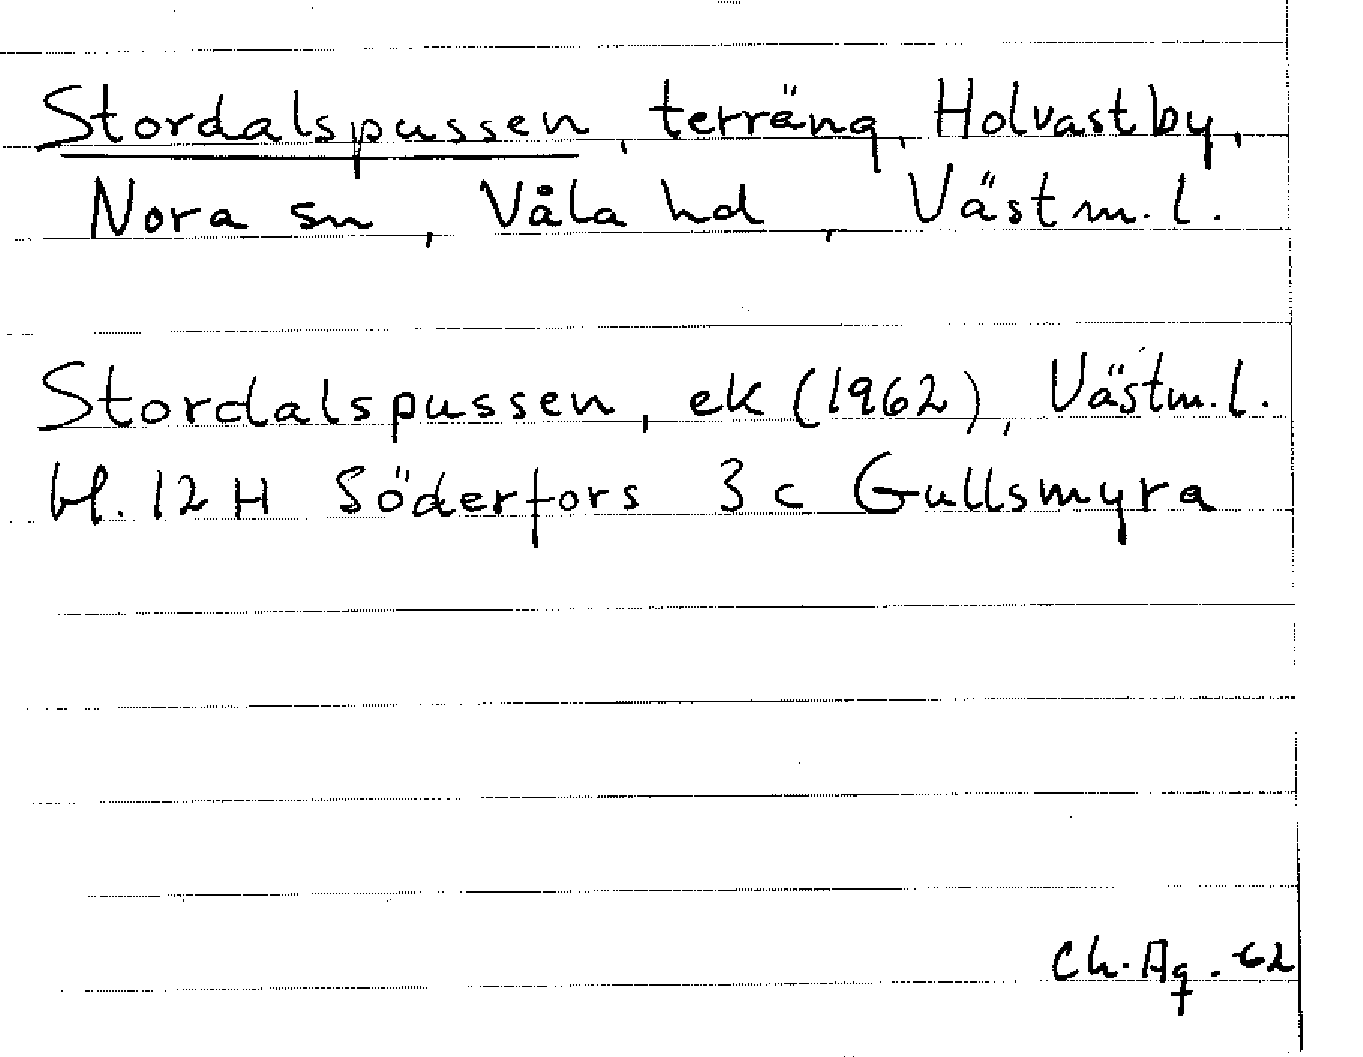 Stordalspussen, terräng, Holvastby,
Nora sn, Våla hd, Västm.l.
Stordalspussen, ek (1962), Västm.l.
bl. 12 H Söderfors 3 c Gullsmyra
Ch. Ag. 62